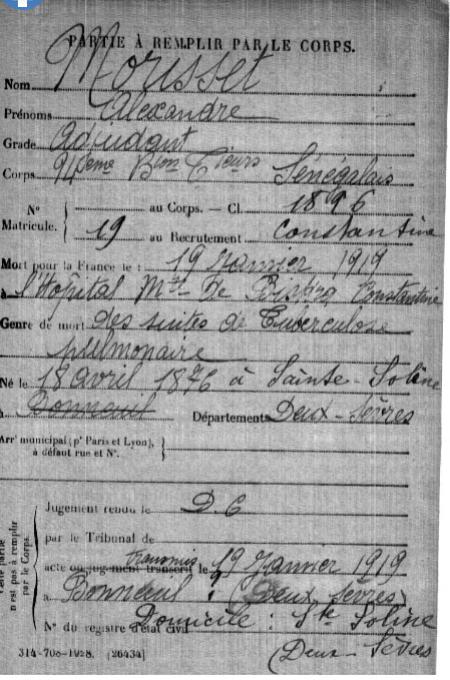 PARTIE À REMPLIR PAR LE CORPS.
Nom Morisset
Prénoms Alexandre
Grade Adjudant
Corps 94ème Bon Tieurs Sénégalais
N° au Corps. — Cl. 1896
Matricule. 19 au Recrutement Constantine
Mort pour la France le : 19 Janvier 1919
à l'Hôpital Mre De Biskra Constantine
Genre de mort des suites de Tuberculose
pulmonaire
Né le 18 avril 1876 à Sainte-Soline
à Bonneuil Département Deux-Sèvres
Arrt municipal (pr Paris et Lyon),
à défaut rue et N°.
Cette partie n'est pas à remplir par le Corps.
Jugement rendu le D.C
par le Tribunal de
transmis
acte ou jugement transcrit le 19 Janvier 1919
à Bonneuil (Deux Sèvres)
N° du registre d'état civil Domicile : Ste Soline
(Deux-Sèvres
314-708-1928. [26434]